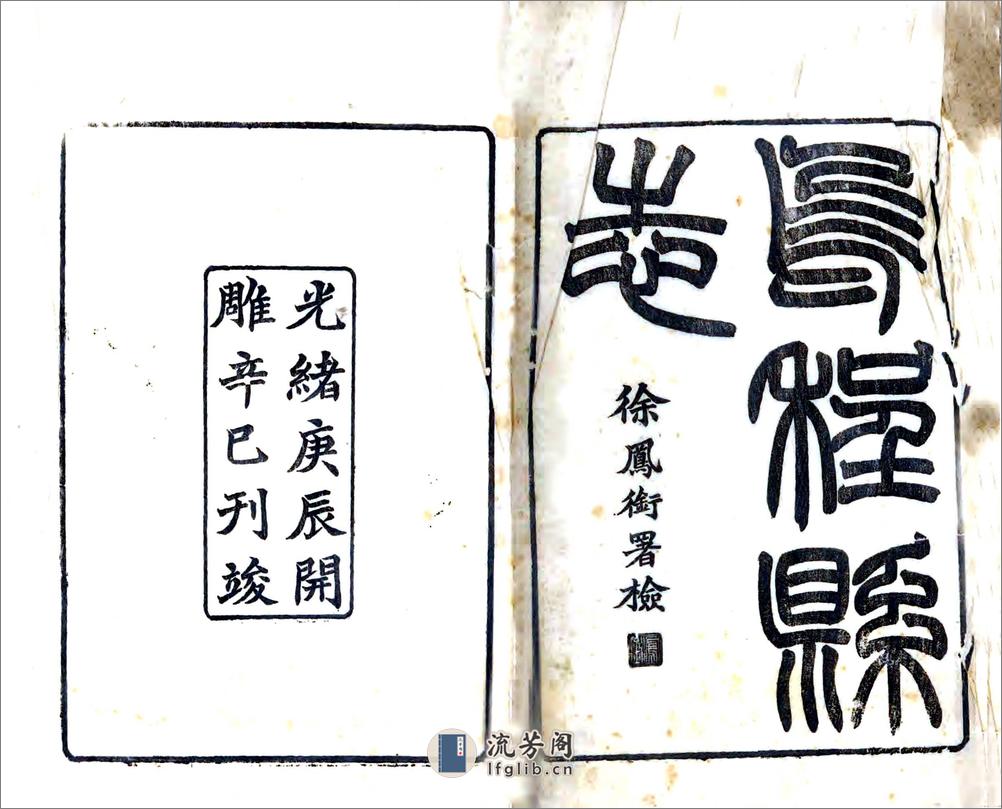 烏程縣
志
徐鳳銜署檢
光緒庚辰開
雕辛巳刊竣
流芳阁
lfglib.cn